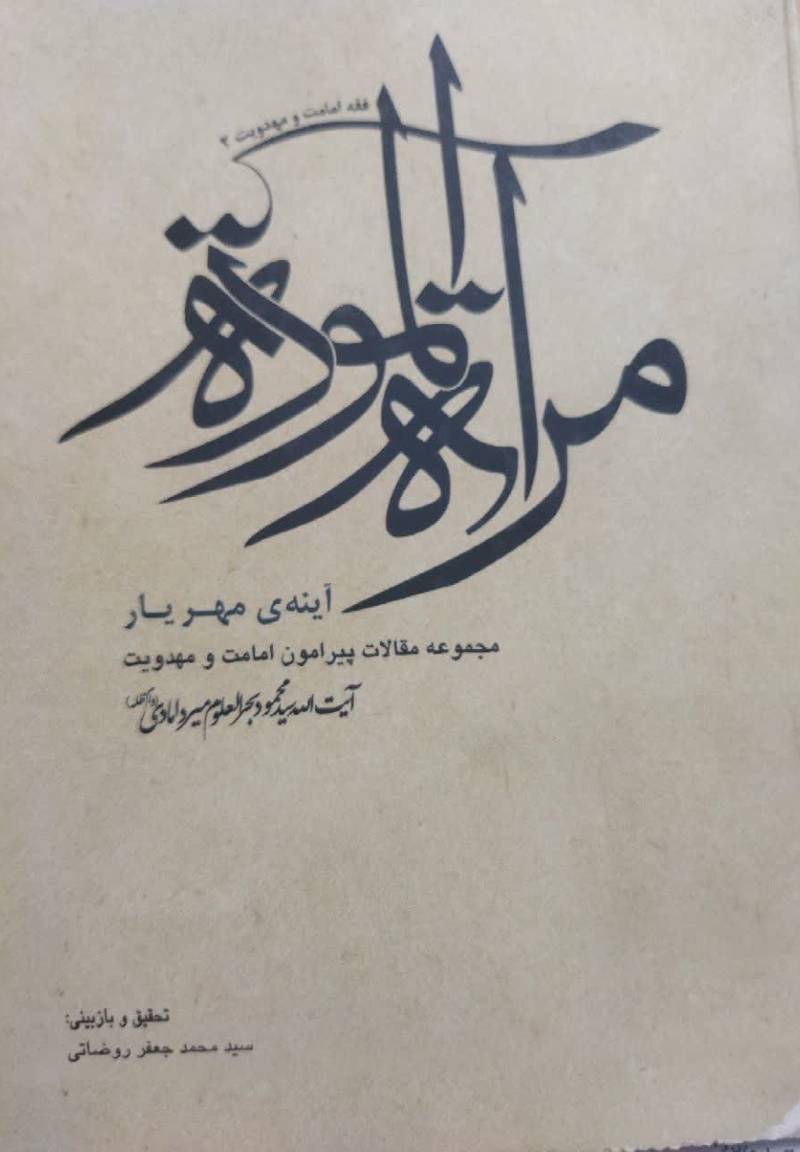 فقه امامت و مهدویت ۲
مرآة المودة
آینه‌ی مهر یار
مجموعه مقالات پیرامون امامت و مهدویت
آیت الله سید محمود بحرالعلوم میردامادی
تحقیق و بازبینی:
سید محمد جعفر روضاتی